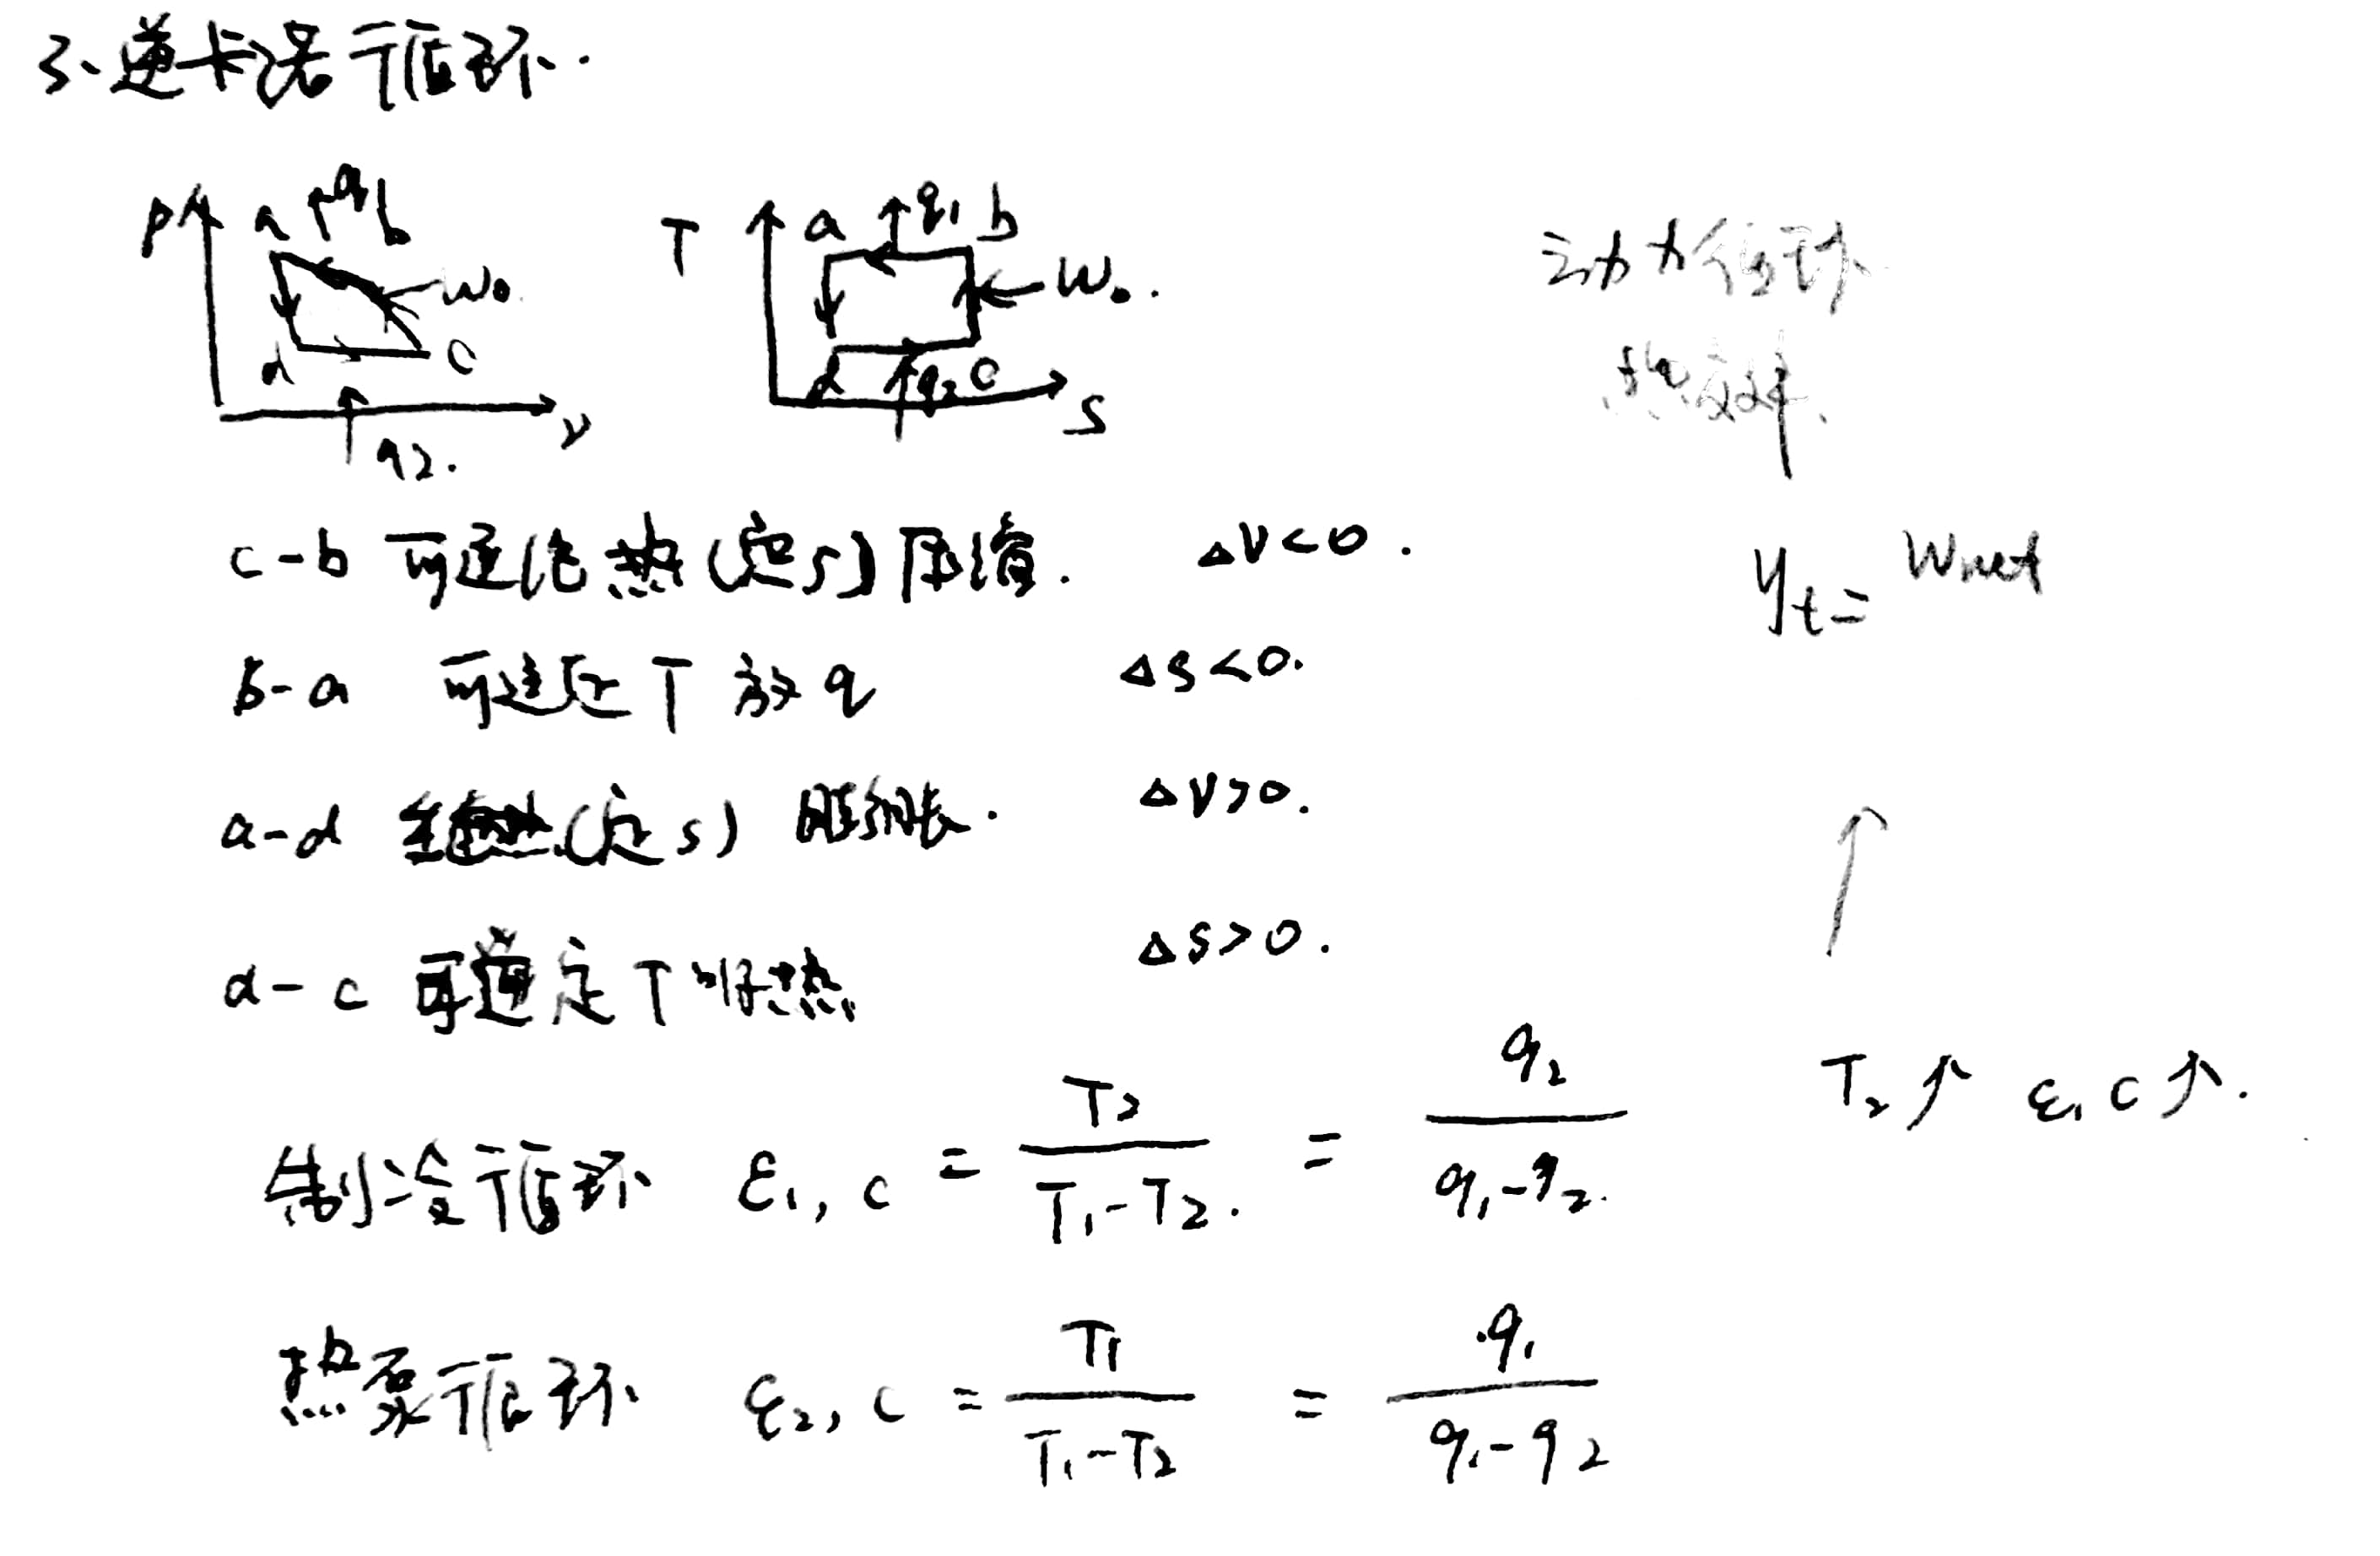 3、逆卡诺循环.
P a q1 b W0 d c v q2.
T a q1 b W0. d q2 c S
动力循环
热效率
c-b 可逆绝热(定s)压缩. ΔV<0.
ηt= Wnet
b-a 可逆定T放q Δs<0.
a-d 绝热(定s) 膨胀. ΔV>0.
d-c 可逆定T吸热 Δs>0.
制冷循环 ε1,c = T2/(T1-T2). = q2/(q1-q2). T2↑ ε1 c↑.
热泵循环 ε2,c = T1/(T1-T2) = q1/(q1-q2)